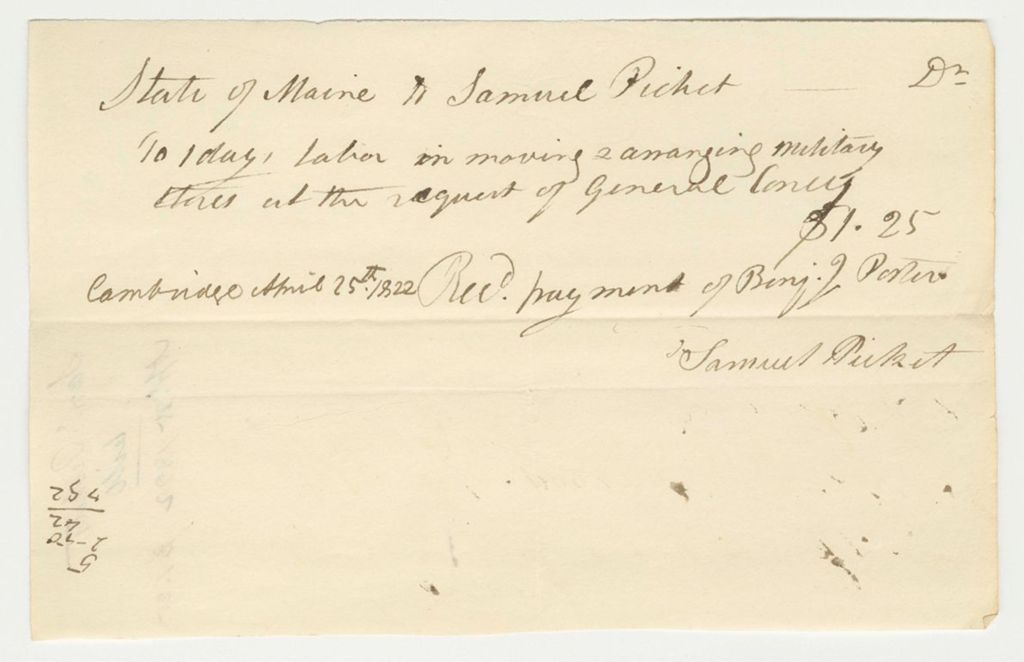 State of Maine to Samuel Picket Dr
To 1 days labor in moving & arranging military
stores at the request of General Coney
$1.25
Cambridge April 25th. 1822 Recd. payment of Benj. J Porter
Samuel Picket